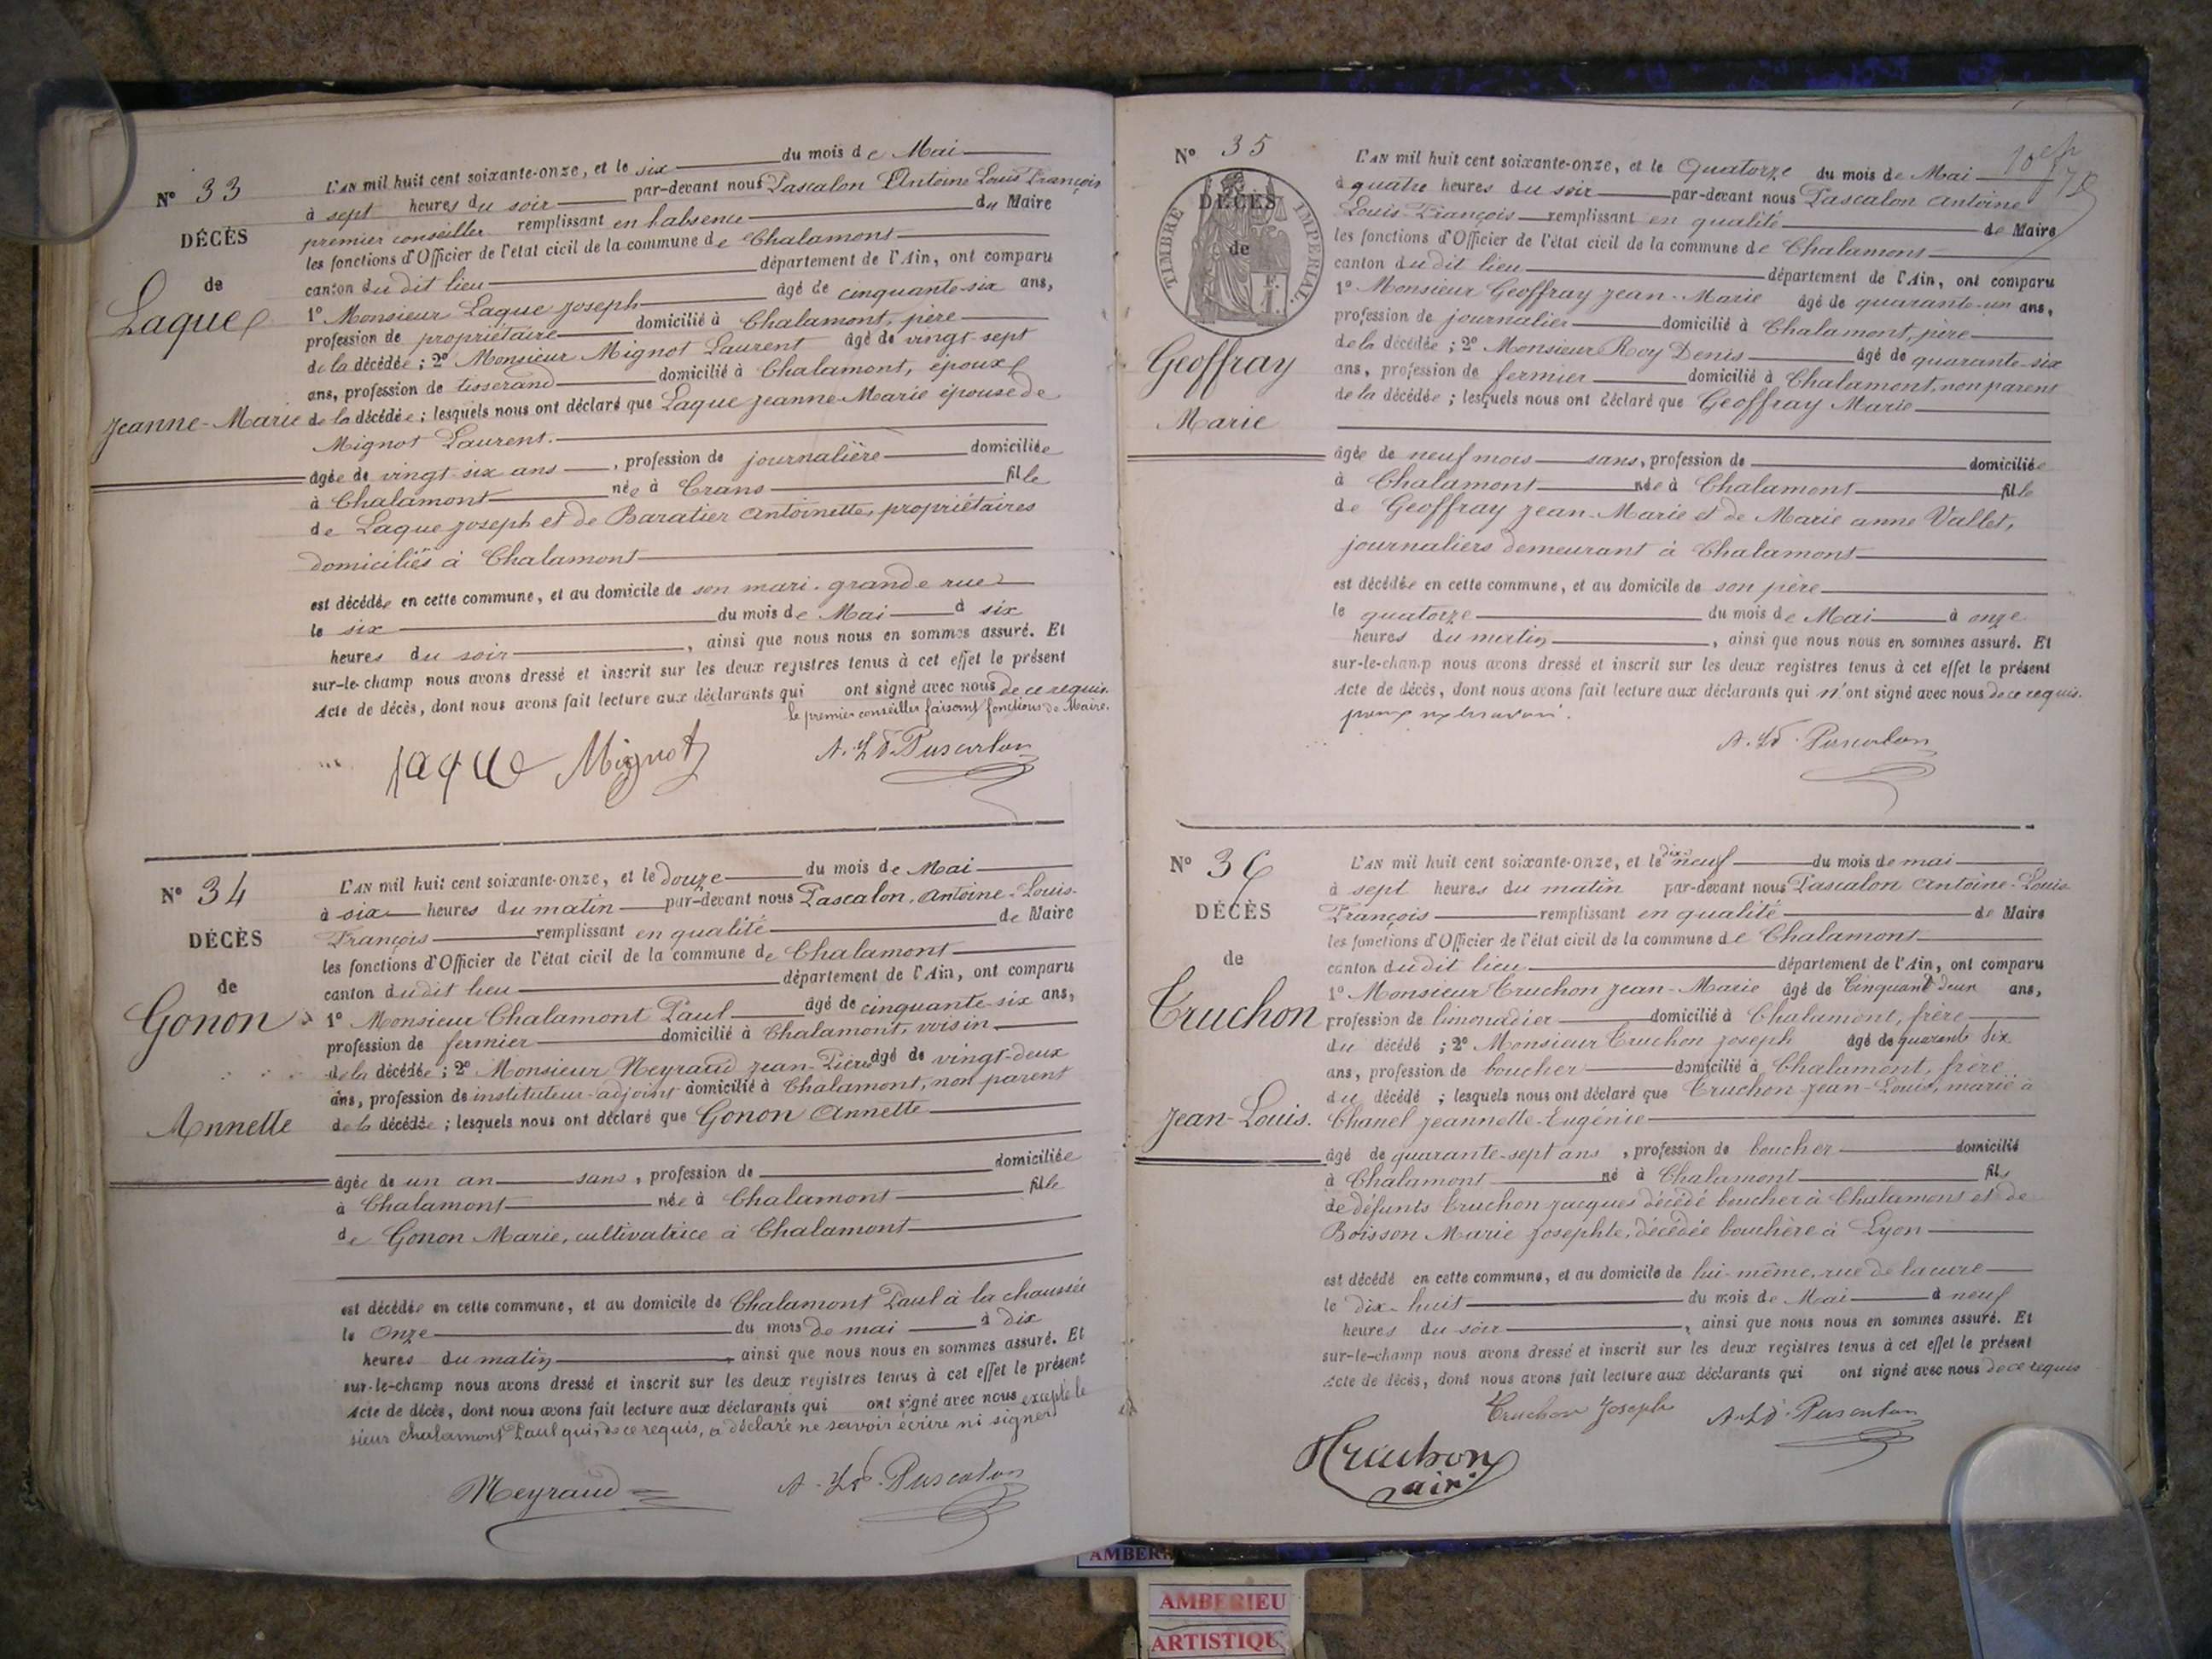 N° 33
DÉCÈS
de
Laque
Jeanne-Marie
L'AN mil huit cent soixante-onze, et le six du mois de Mai
à sept heures du soir par-devant nous Pascalon Antoine Louis François
premier conseiller remplissant en l'absence du Maire
les fonctions d'Officier de l'état civil de la commune de Chalamont
canton du dit lieu département de l'Ain, ont comparu
1° Monsieur Laque Joseph âgé de cinquante-six ans,
profession de propriétaire domicilié à Chalamont, père
de la décédée ; 2° Monsieur Mignot Laurent âgé de vingt-sept
ans, profession de tisserand domicilié à Chalamont, époux
de la décédée ; lesquels nous ont déclaré que Laque Jeanne-Marie épouse de
Mignot Laurent.
âgée de vingt-six ans, profession de journalière domiciliée
à Chalamont née à Crans fille
de Laque Joseph et de Baratier Antoinette, propriétaires
domiciliés à Chalamont
est décédée en cette commune, et au domicile de son mari. grande rue
le six du mois de Mai à six
heures du soir, ainsi que nous nous en sommes assuré. Et
sur-le-champ nous avons dressé et inscrit sur les deux registres tenus à cet effet le présent
Acte de décès, dont nous avons fait lecture aux déclarants qui ont signé avec nous de ce requis.
le premier conseiller faisant fonctions de Maire.
Laque Mignot A. Ls F. Pascalon
N° 34
DÉCÈS
de
Gonon
Annette
L'AN mil huit cent soixante-onze, et le douze du mois de Mai
à six heures du matin par-devant nous Pascalon, Antoine-Louis-
François remplissant en qualité de Maire
les fonctions d'Officier de l'état civil de la commune de Chalamont
canton du dit lieu département de l'Ain, ont comparu
1° Monsieur Chalamont Paul âgé de cinquante-six ans,
profession de fermier domicilié à Chalamont, voisin
de la décédée ; 2° Monsieur Meyraud Jean-Pierre âgé de vingt-deux
ans, profession de instituteur-adjoint domicilié à Chalamont, non parent
de la décédée ; lesquels nous ont déclaré que Gonon Annette
âgée de un an sans, profession de domiciliée
à Chalamont née à Chalamont fille
de Gonon Marie, cultivatrice à Chalamont
est décédée en cette commune, et au domicile de Chalamont Paul à la chaussée
le Onze du mois de mai à dix
heures du matin, ainsi que nous nous en sommes assuré. Et
sur-le-champ nous avons dressé et inscrit sur les deux registres tenus à cet effet le présent
Acte de décès, dont nous avons fait lecture aux déclarants qui ont signé avec nous excepté le
sieur Chalamont Paul qui, de ce requis, a déclaré ne savoir écrire ni signer
Meyraud A. Ls F. Pascalon
N° 35
DÉCÈS
de
TIMBRE IMPÉRIAL
Geoffray
Marie
L'AN mil huit cent soixante-onze, et le Quatorze du mois de Mai
à quatre heures du soir par-devant nous Pascalon Antoine
Louis-François remplissant en qualité de Maire
les fonctions d'Officier de l'état civil de la commune de Chalamont
canton du dit lieu département de l'Ain, ont comparu
1° Monsieur Geoffray Jean-Marie âgé de quarante-un ans,
profession de journalier domicilié à Chalamont, père
de la décédée ; 2° Monsieur Roy Denis âgé de quarante-six
ans, profession de fermier domicilié à Chalamont, non parent
de la décédée ; lesquels nous ont déclaré que Geoffray Marie
âgée de neuf mois sans, profession de domiciliée
à Chalamont née à Chalamont fille
de Geoffray Jean-Marie et de Marie anne Vallet,
journaliers demeurant à Chalamont
est décédée en cette commune, et au domicile de son père
le quatorze du mois de Mai à onze
heures du matin, ainsi que nous nous en sommes assuré. Et
sur-le-champ nous avons dressé et inscrit sur les deux registres tenus à cet effet le présent
Acte de décès, dont nous avons fait lecture aux déclarants qui n'ont signé avec nous de ce requis.
A. Ls F. Pascalon
N° 36
DÉCÈS
de
Truchon
Jean-Louis.
L'AN mil huit cent soixante-onze, et le dix-neuf du mois de mai
à sept heures du matin par-devant nous Pascalon Antoine-Louis
François remplissant en qualité de Maire
les fonctions d'Officier de l'état civil de la commune de Chalamont
canton du dit lieu département de l'Ain, ont comparu
1° Monsieur Truchon Jean-Marie âgé de Cinquant deux ans,
profession de limonadier domicilié à Chalamont, frère
du décédé ; 2° Monsieur Truchon Joseph âgé de quarante six
ans, profession de boucher domicilié à Chalamont, frère
du décédé ; lesquels nous ont déclaré que Truchon Jean-Louis, marié à
Chanel Jeannette-Eugénie
âgé de quarante-sept ans, profession de boucher domicilié
à Chalamont né à Chalamont fils
de défunts Truchon Jacques décédé boucher à Chalamont et de
Boisson Marie Josephte, décédée bouchère à Lyon
est décédé en cette commune, et au domicile de lui-même, rue de la cure
le dix-huit du mois de Mai à neuf
heures du soir, ainsi que nous nous en sommes assuré. Et
sur-le-champ nous avons dressé et inscrit sur les deux registres tenus à cet effet le présent
Acte de décès, dont nous avons fait lecture aux déclarants qui ont signé avec nous de ce requis
Truchon Joseph A. Ls F. Pascalon
Truchon
ainé
AMBERIEU
ARTISTIQU